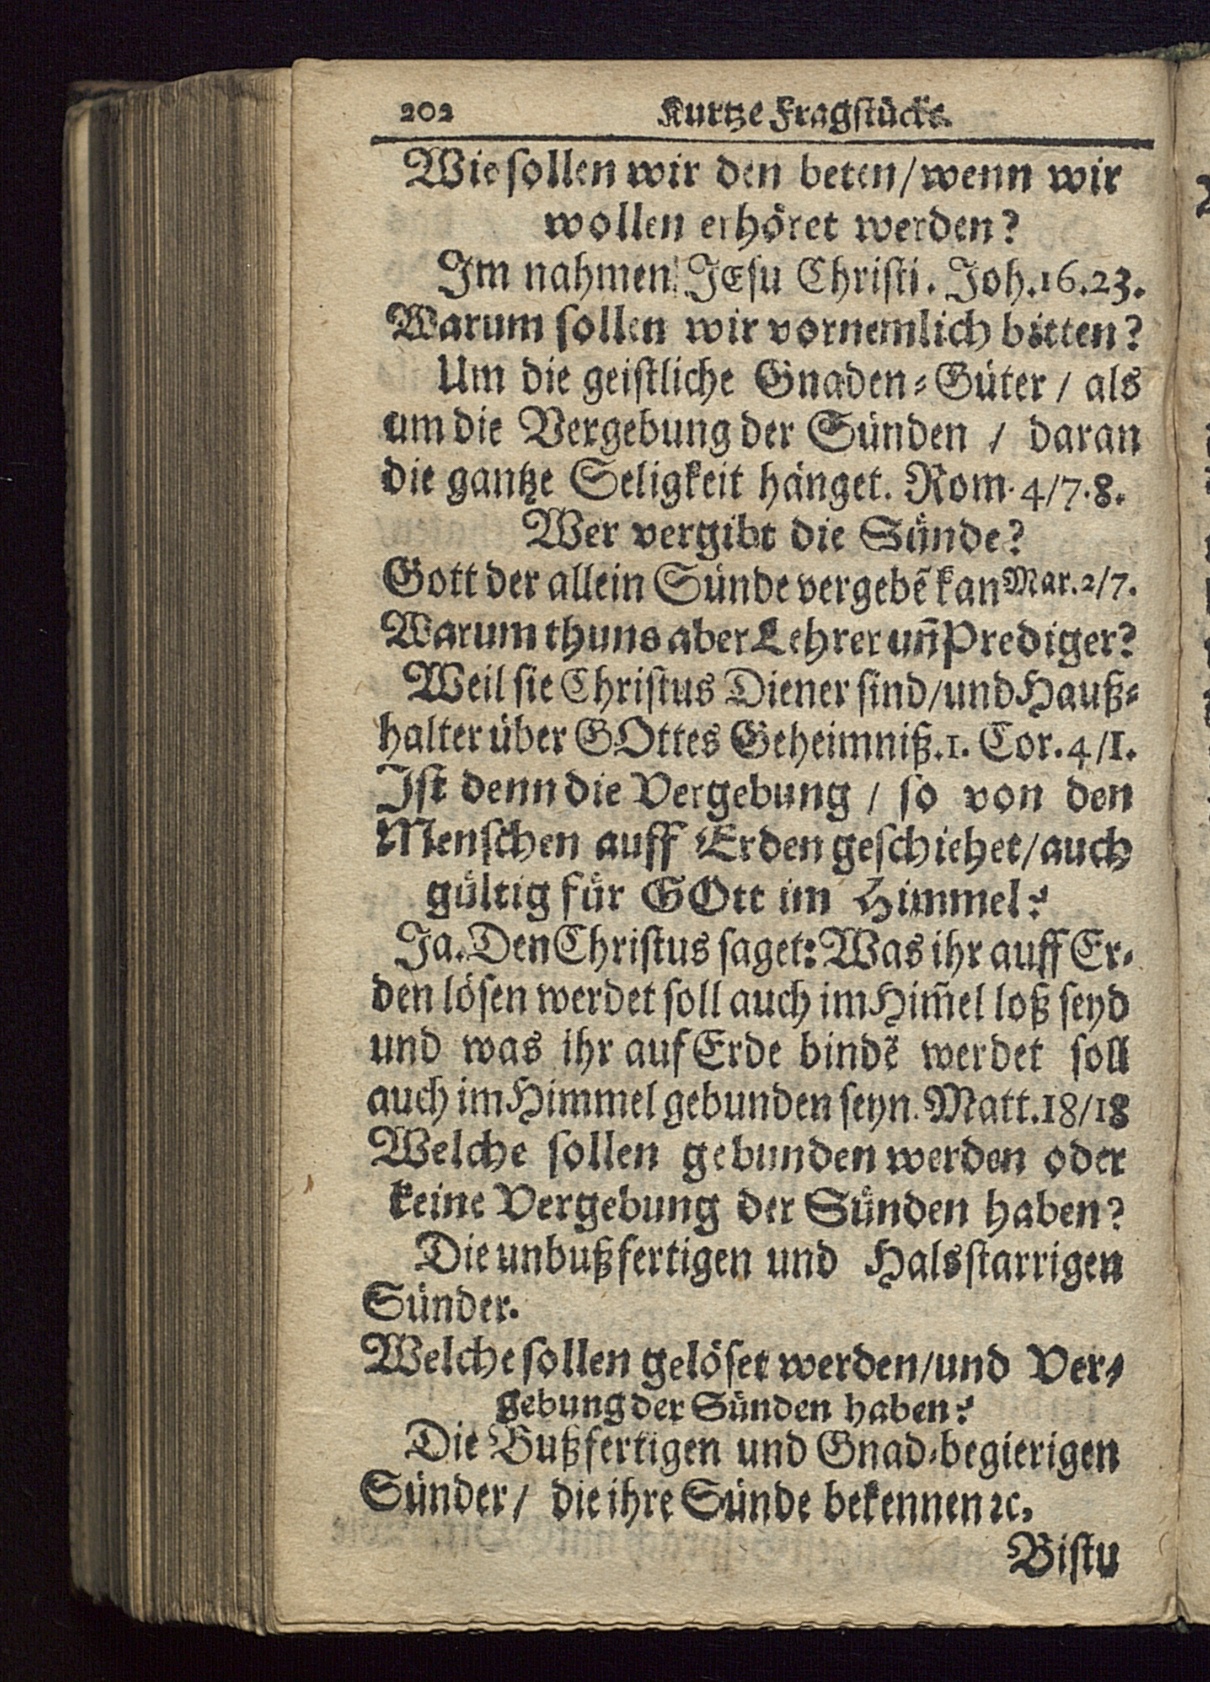 202 Kurtze Fragstücke.
Wie sollen wir den beten/wenn wir
wollen erhöret werden?
Im nahmen JEsu Christi. Joh.16.23.
Warum sollen wir vornemlich bitten?
Um die geistliche Gnaden-Güter / als
um die Vergebung der Sünden / daran
die gantze Seligkeit hänget. Rom. 4/7.8.
Wer vergibt die Sünde?
Gott der allein Sünde vergebẽ kan Mar.2/7.
Warum thuns aber Lehrer uñ Prediger?
Weil sie Christus Diener sind/und Hauß-
halter über GOttes Geheimniß.1. Cor.4/1.
Ist denn die Vergebung / so von den
Menschen auff Erden geschiehet/auch
gültig für GOtt im Himmel?
Ja. Den Christus saget: Was ihr auff Er-
den lösen werdet soll auch im Him̃el loß seyd
und was ihr auf Erde bindẽ werdet soll
auch im Himmel gebunden seyn. Matt.18/18
Welche sollen gebunden werden oder
keine Vergebung der Sünden haben?
Die unbußfertigen und Halsstarrigen
Sünder.
Welche sollen gelöset werden/und Ver-
gebung der Sünden haben?
Die Bußfertigen und Gnad-begierigen
Sünder/ die ihre Sünde bekennen ꝛc.
Bistu